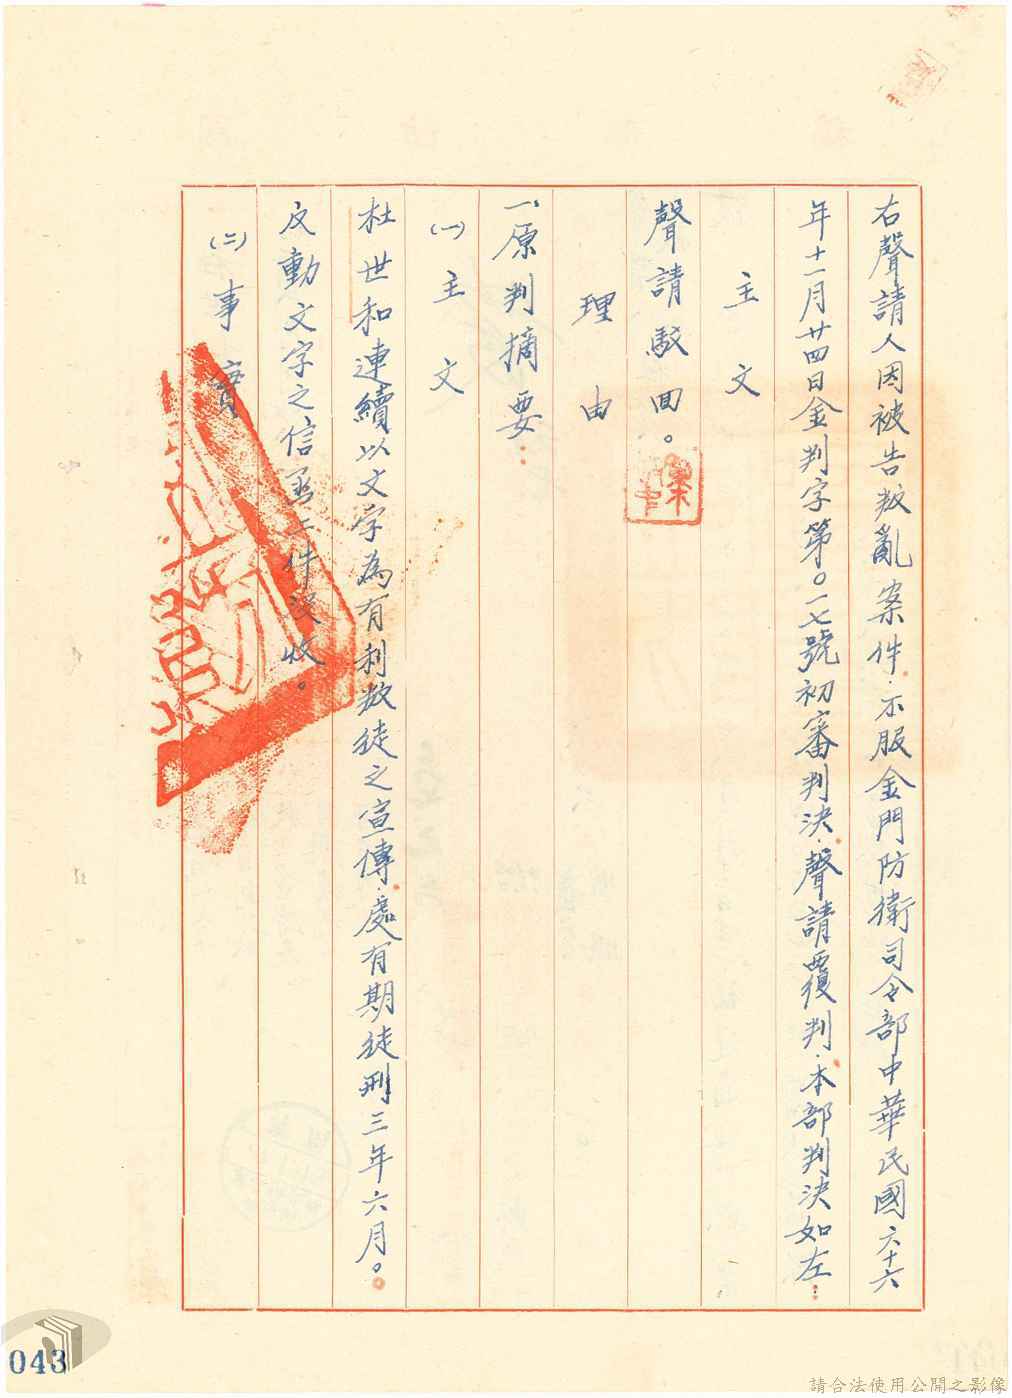 右聲請人因被告叛亂案件．不服金門防衛司令部中華民國六十六
年十一月廿四日金判字第〇一七號初審判決．聲請覆判．本部判決如左：
主文
聲請駁回。
理由
一、原判摘要：
(一)主文
杜世和連續以文字為有利叛徒之宣傳．處有期徒刑三年六月。
反動文字之信函二件沒收。
(二)事實
043
請合法使用公開之影像